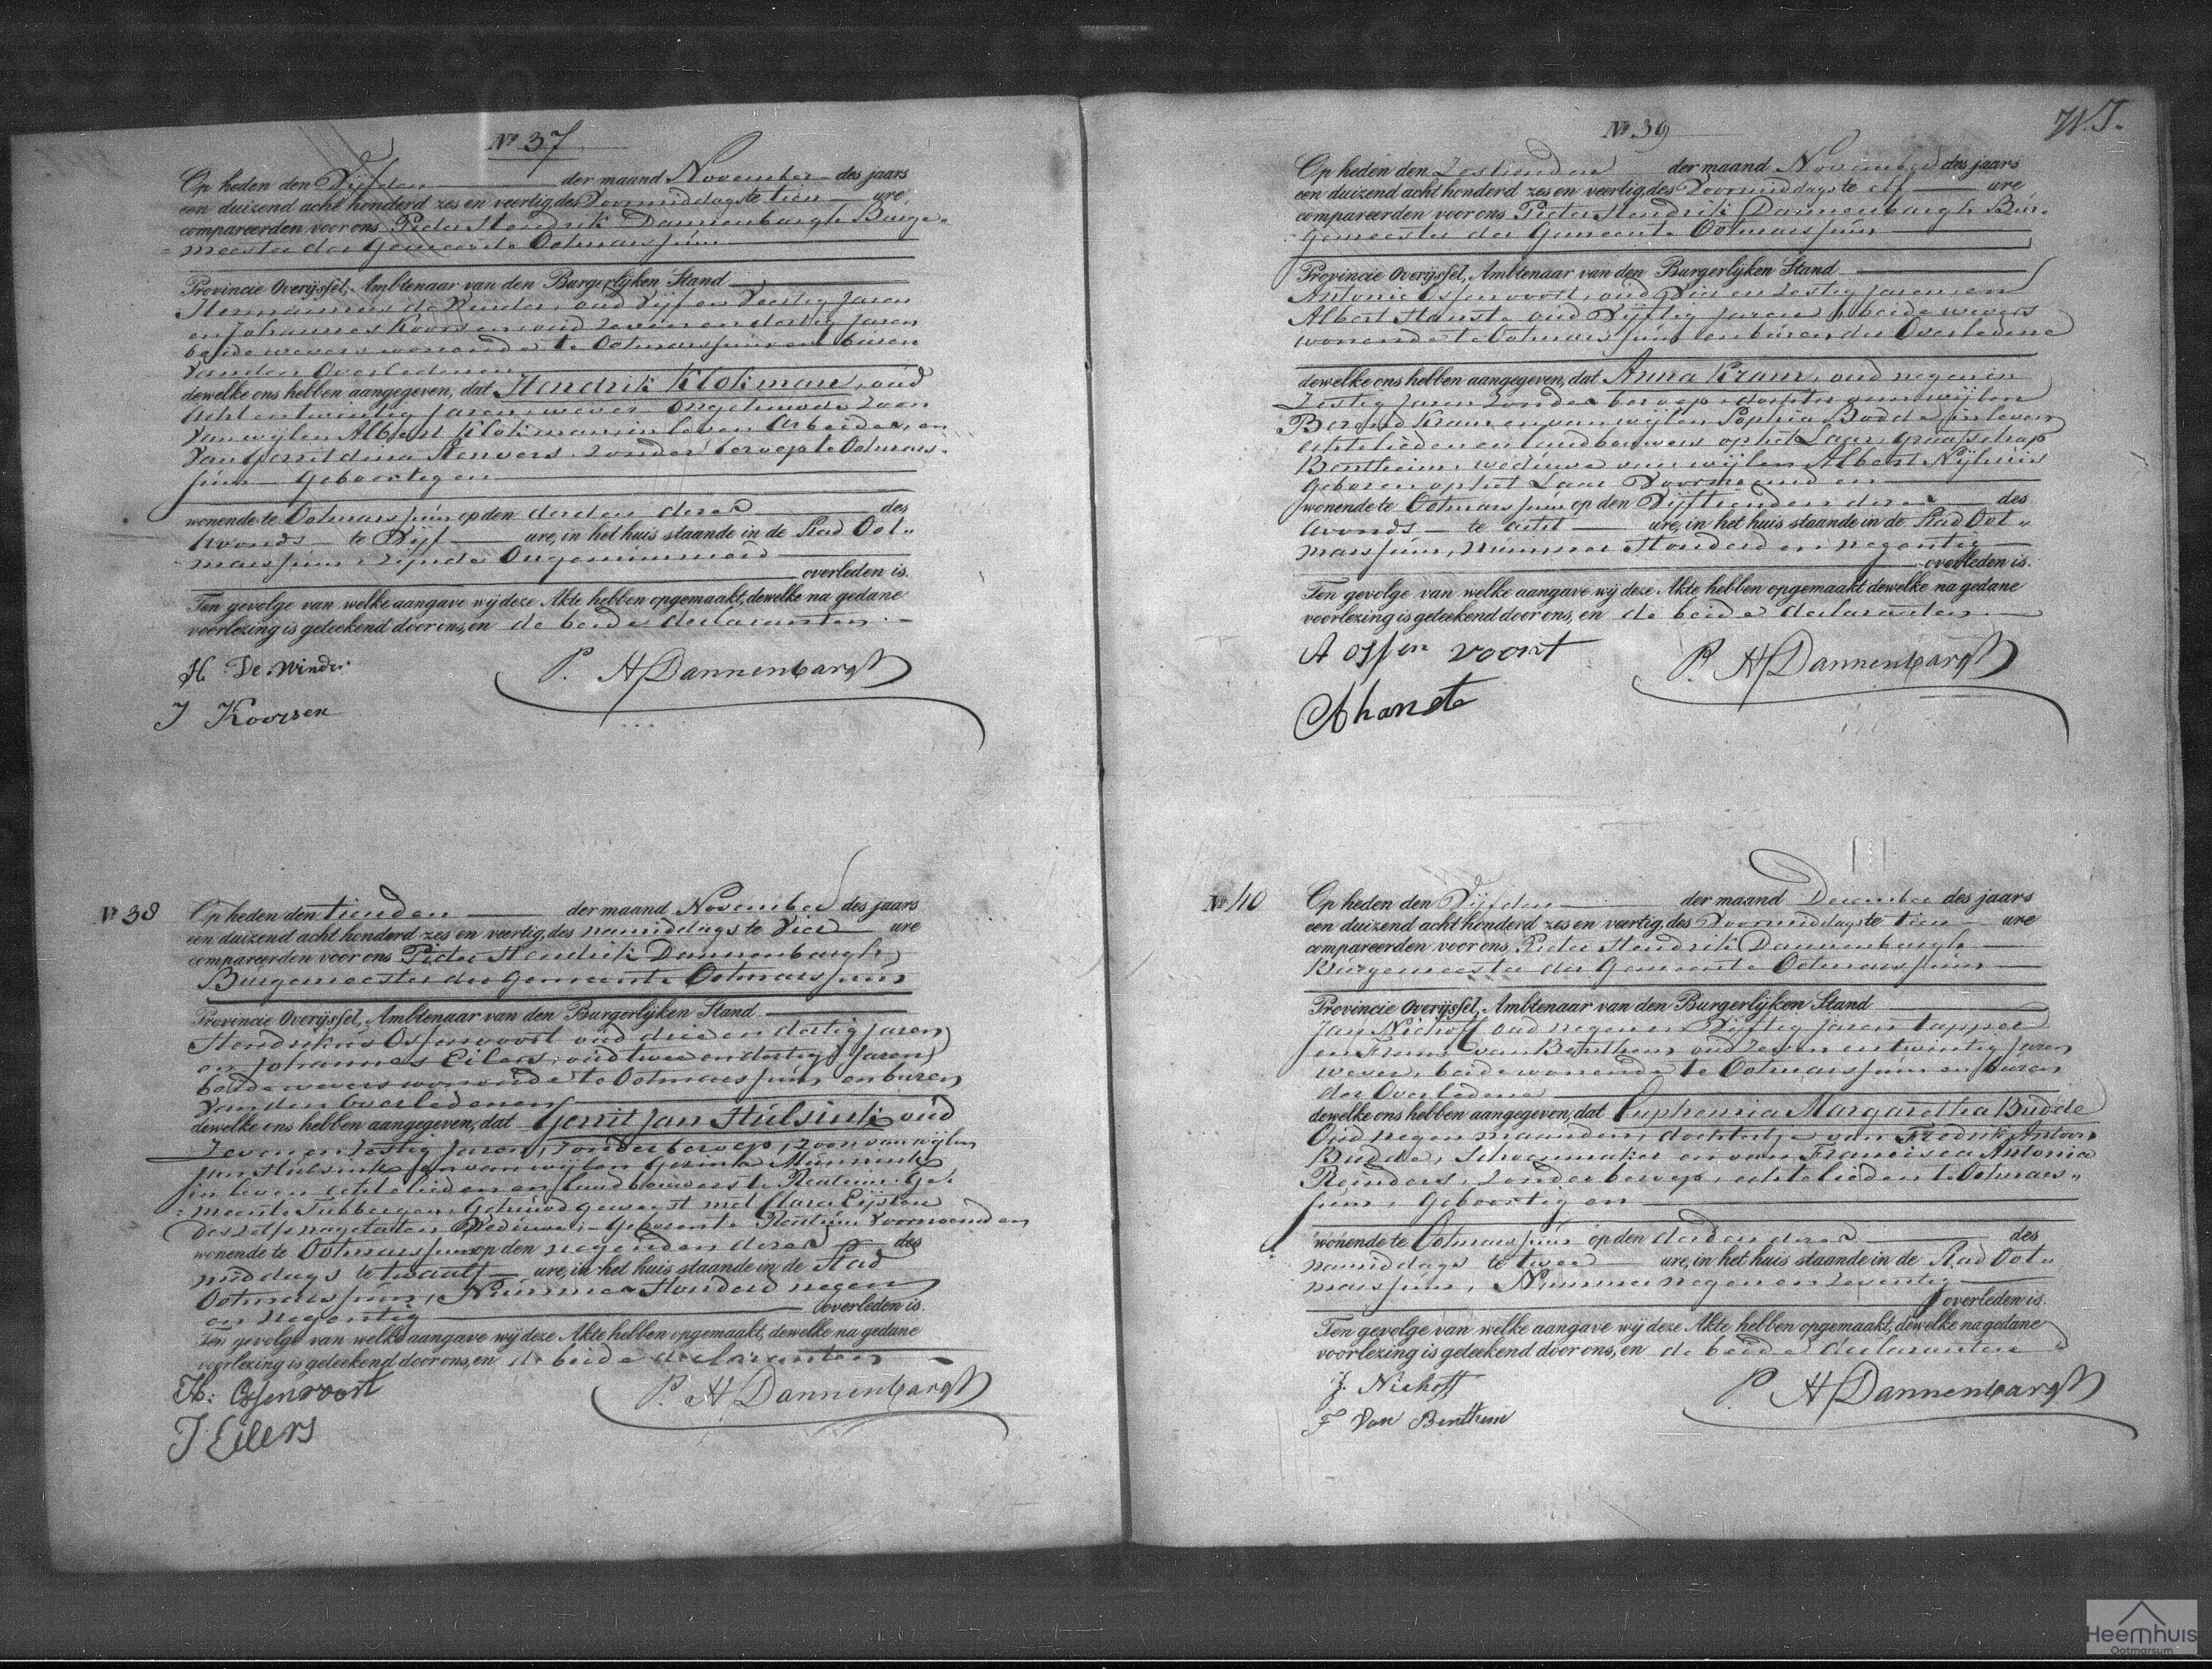 Nº 37
Op heden den Vijfden der maand November des jaars
een duizend acht honderd zes en veertig, des Voormiddags te tien ure,
compareerden voor ons Pieter Hendrik Dannenbargh Burge-
meester der Gemeente Ootmarssum
Provincie Overijssel, Ambtenaar van den Burgerlijken Stand
Hermannus de Winder, oud Vijf en Veertig Jaren
en Johannes Koorsen, oud zeven en dertig Jaren
beide wevers wonende te Ootmarssum en buren
Van den Overledenen
dewelke ons hebben aangegeven, dat Hendrik Klokman, oud
Acht en twintig Jaren, wever Ongehuwde Zoon
Van wijlen Albert Klokman, in leven Arbeider, en
Van Gerritdina Stenvers zonder beroep te Ootmars-
sum Geboortig en
wonende te Ootmarssum op den derden dezer des
Avonds te Vijf ure, in het huis staande in de Stad Oot-
marssum zijnde Ongenummerd
overleden is.
Ten gevolge van welke aangave wij deze Akte hebben opgemaakt, dewelke na gedane
voorlezing is geteekend door ons, en de beide declaranten.
H. De Winder
P. H Dannenbargh
J Koorsen
Nº 38
Op heden den tienden der maand November des jaars
een duizend acht honderd zes en veertig, des namiddags te Vier ure
compareerden voor ons Pieter Hendrik Dannenbargh
Burgemeester der Gemeente Ootmarssum
Provincie Overijssel, Ambtenaar van den Burgerlijken Stand
Hendrikus Ossenvoort oud drie en dertig Jaren
en Johannes Eilers, oud twee en dertig Jaren
beide wevers wonende te Ootmarssum en buren
Van den Overledenen
dewelke ons hebben aangegeven, dat Gerrit Jan Hulsink oud
Zeven en Zestig Jaren, zonder beroep, Zoon van wijlen
Jan Hulsink en van wijlen Gesina Münnink
in leven echtelieden en landbouwers te Reutum Ge-
meente Tubbergen, Gehuwd geweest met Clara Eijsten
Deszelfs nagelaten Weduwe; Geboren te Reutum Voornoemd en
wonende te Ootmarssum op den negenden dezer des
middags te twaalf ure, in het huis staande in de Stad
Ootmarssum, Nummer Honderd negen
en Negentig
overleden is.
Ten gevolge van welke aangave wij deze Akte hebben opgemaakt, dewelke na gedane
voorlezing is geteekend door ons, en de beide declaranten
H: Ossenvoort
P. H Dannenbargh
J Eilers
W.J.
Nº 39
Op heden den Zestienden der maand November des jaars
een duizend acht honderd zes en veertig, des Voormiddags te elf ure
compareerden voor ons Pieter Hendrik Dannenbargh Bur-
gemeester der Gemeente Ootmarssum
Provincie Overijssel, Ambtenaar van den Burgerlijken Stand
Antonie Ossenvoort, oud Vier en Zestig Jaren, en
Albert Hanste oud Vijftig Jaren, beide wevers
wonende te Ootmarssum en buren der Overledene
dewelke ons hebben aangegeven, dat Anna Kram, oud negen en
Zestig Jaren zonder beroep dochter van wijlen
Berend Kram en van wijlen Sophia Bodde in leven
echtelieden en landbouwers op het Laar Graafschap
Bentheim, weduwe van wijlen Albert Nijhuis
Geboren op het Laar Voornoemd en
wonende te Ootmarssum op den Vijftienden dezer des
Avonds te acht ure, in het huis staande in de Stad Oot-
marssum, Nummer Honderd en negentig
overleden is.
Ten gevolge van welke aangave wij deze Akte hebben opgemaakt dewelke na gedane
voorlezing is geteekend door ons, en de beide declaranten
A ossen voort
P. H Dannenbargh
A hanste
Nº 40
Op heden den Vijfden der maand December des jaars
een duizend acht honderd zes en veertig, des Voormiddags te tien ure
compareerden voor ons Pieter Hendrik Dannenbargh
Burgemeester der Gemeente Ootmarssum
Provincie Overijssel, Ambtenaar van den Burgerlijken Stand
Jan Niehoff oud negen en Vijftig Jaren tapper
en Frans van Benthem oud Zeven en twintig Jaren
wever, beide wonende te Ootmarssum en buren
der Overledene
dewelke ons hebben aangegeven, dat Euphemia Margaretha Budde
Oud negen maanden, dochtertje van Fredrik Antoon
Budde, Schoenmaker en van Francisca Antonia
Reinders, zonder beroep, echtelieden te Ootmars-
sum, Geboortig en
wonende te Ootmarssum op den derden dezer des
namiddags te twee ure, in het huis staande in de Stad Oot-
marssum, Nummer negen en zeventig
overleden is.
Ten gevolge van welke aangave wij deze Akte hebben opgemaakt, dewelke na gedane
voorlezing is geteekend door ons, en de beide declaranten
J. Niehoff
P. H Dannenbargh
F Van Benthem
Heemhuis
Ootmarsum